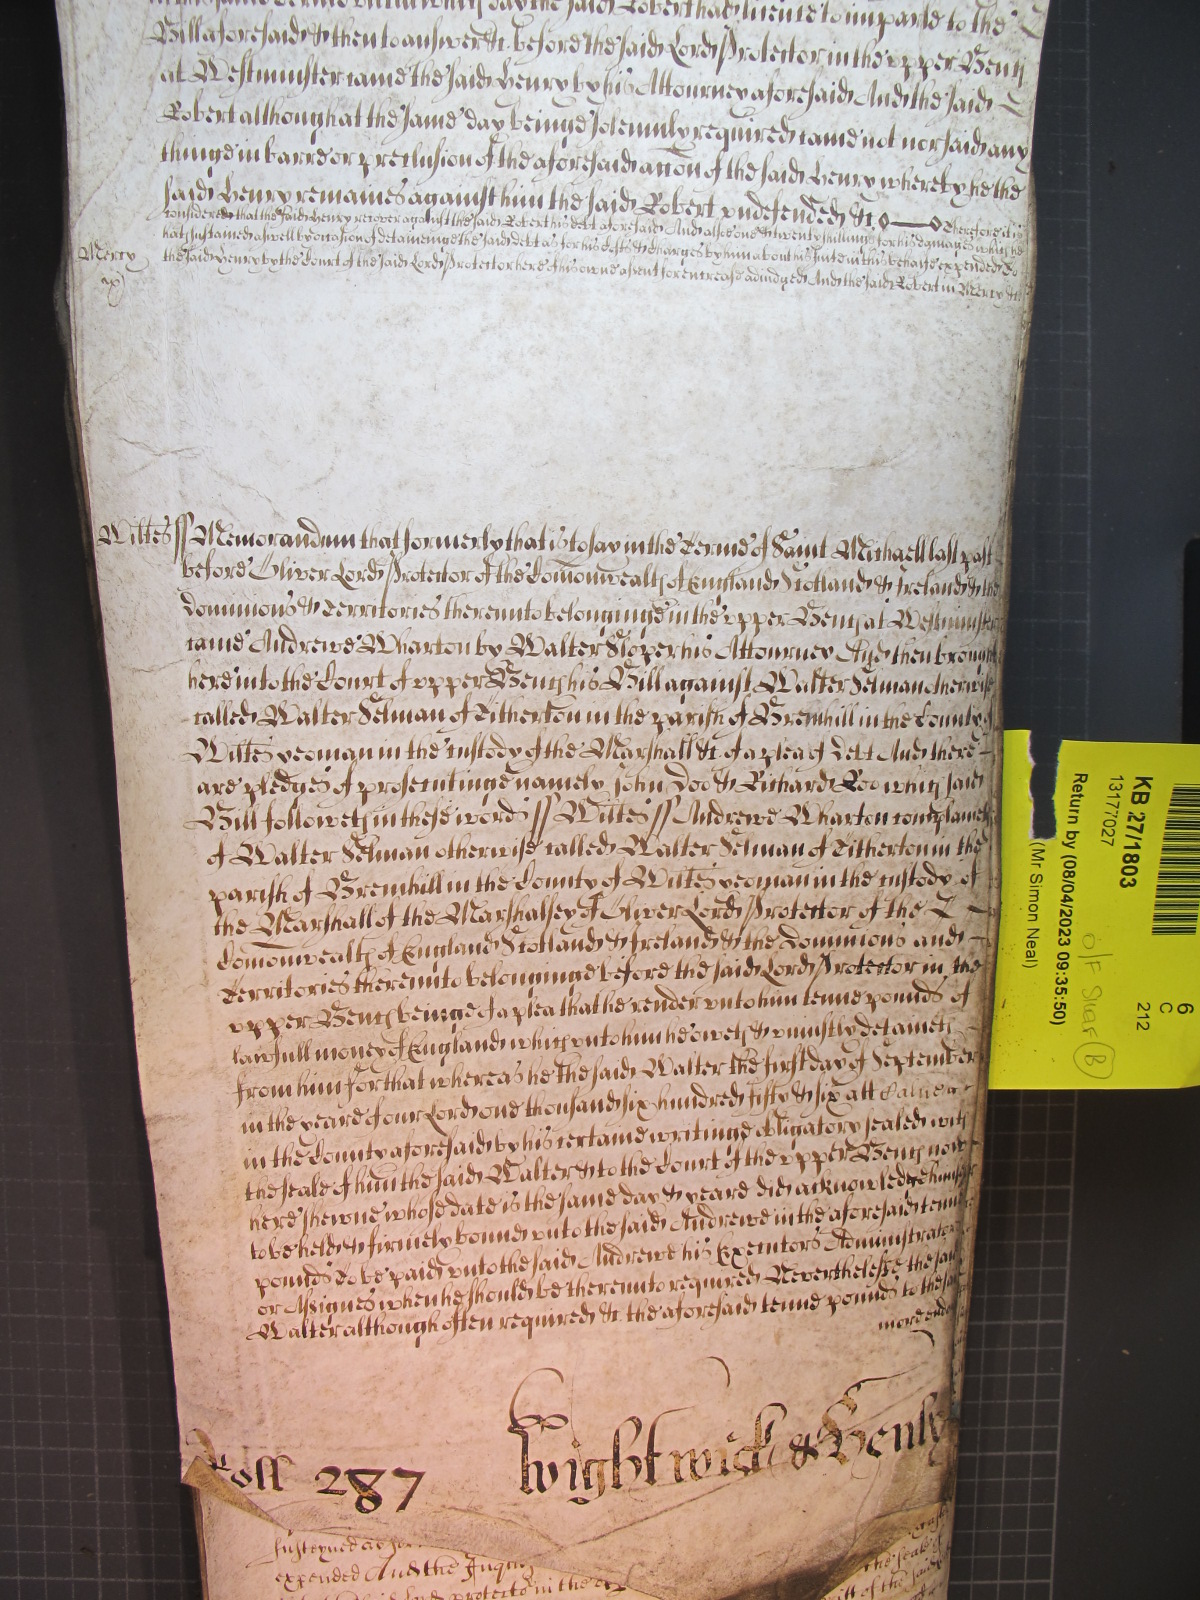 in the same Terme untill which day the said Robert had licence to imparle to the
Bill aforesaid & then to answer &c. before the said Lord Protector in the upper Bench
at Westminster came the said Henry by his Attourney aforesaid And the said
Robert although at the same day beinge solemnly required came not nor said any
thinge in barre or preclusion of the aforesaid accon of the said Henry whereby he the
said Henry remaines against him the said Robert undefended &c. Therefore it is
considered that the said Henry recover against the said Robert his debt aforesaid And also one & twenty shillings for his damages which he
hath sustained aswell by occasion of detaineinge the said debt as for his costs & charges by him about his suite in this behalfe expended to
the said Henry by the Court of the said Lord Protector here of his owne assent for encrease adiudged And the said Robert in Mercy &c
Mercy
Wiltes ss Memorandum that formerly that is to say in the Terme of Saint Michaell last past
before Oliver Lord Protector of the Comonwealth of England Scotland & Ireland & the
dominions & Territories thereunto belonginge in the upper Bench at Westminster
came Andrewe Wharton by Walter Sloper his Attourney And then brought
here into the Court of upper Bench his Bill against Walter Selman otherwise
called Walter Selman of Titherton in the parish of Bremhill in the County of
Wiltes yeoman in the custody of the Marshall &c. of a plea of Debt And there
are pledges of prosecutinge namely John Doo & Richard Roo which said
Bill followeth in these words ss Wiltes ss Andrewe Wharton complaineth
of Walter Selman otherwise called Walter Selman of Titherton in the
parish of Bremhill in the County of Wiltes yeoman in the custody of
the Marshall of the Marshalsey of Oliver Lord Protector of the
Comonwealth of England Scotland & Ireland & the Dominions and
Territories thereunto belonginge before the said Lord Protector in the
upper Bench beinge of a plea that he render unto him tenne pounds of
lawfull money of England which unto him he oweth & uniustly detaineth
from him for that whereas he the said Walter the first day of September
in the yeare of our Lord one thousand six hundred fifty & six att
in the County aforesaid by his certaine writinge obligatory sealed with
the seale of him the said Walter & to the Court of the upper Bench now
here shewne whose date is the same day & yeare did acknowledge himself
to be held & firmely bound unto the said Andrewe in the aforesaid tenne
pounds to be paid unto the said Andrewe his Executors Administrators
or Assignes when he should be thereunto required Neverthelesse the said
Walter although often required &c. the aforesaid tenne pounds to the said
more endors
Roll 287 Wightwick & Henly
expended And the
Lord protector in the
the seale of
of the said
KB 27/1803
13177027
Return by (08/04/2023 09:35:50)
(Mr Simon Neal)
6
C
212
O/F Shelf B